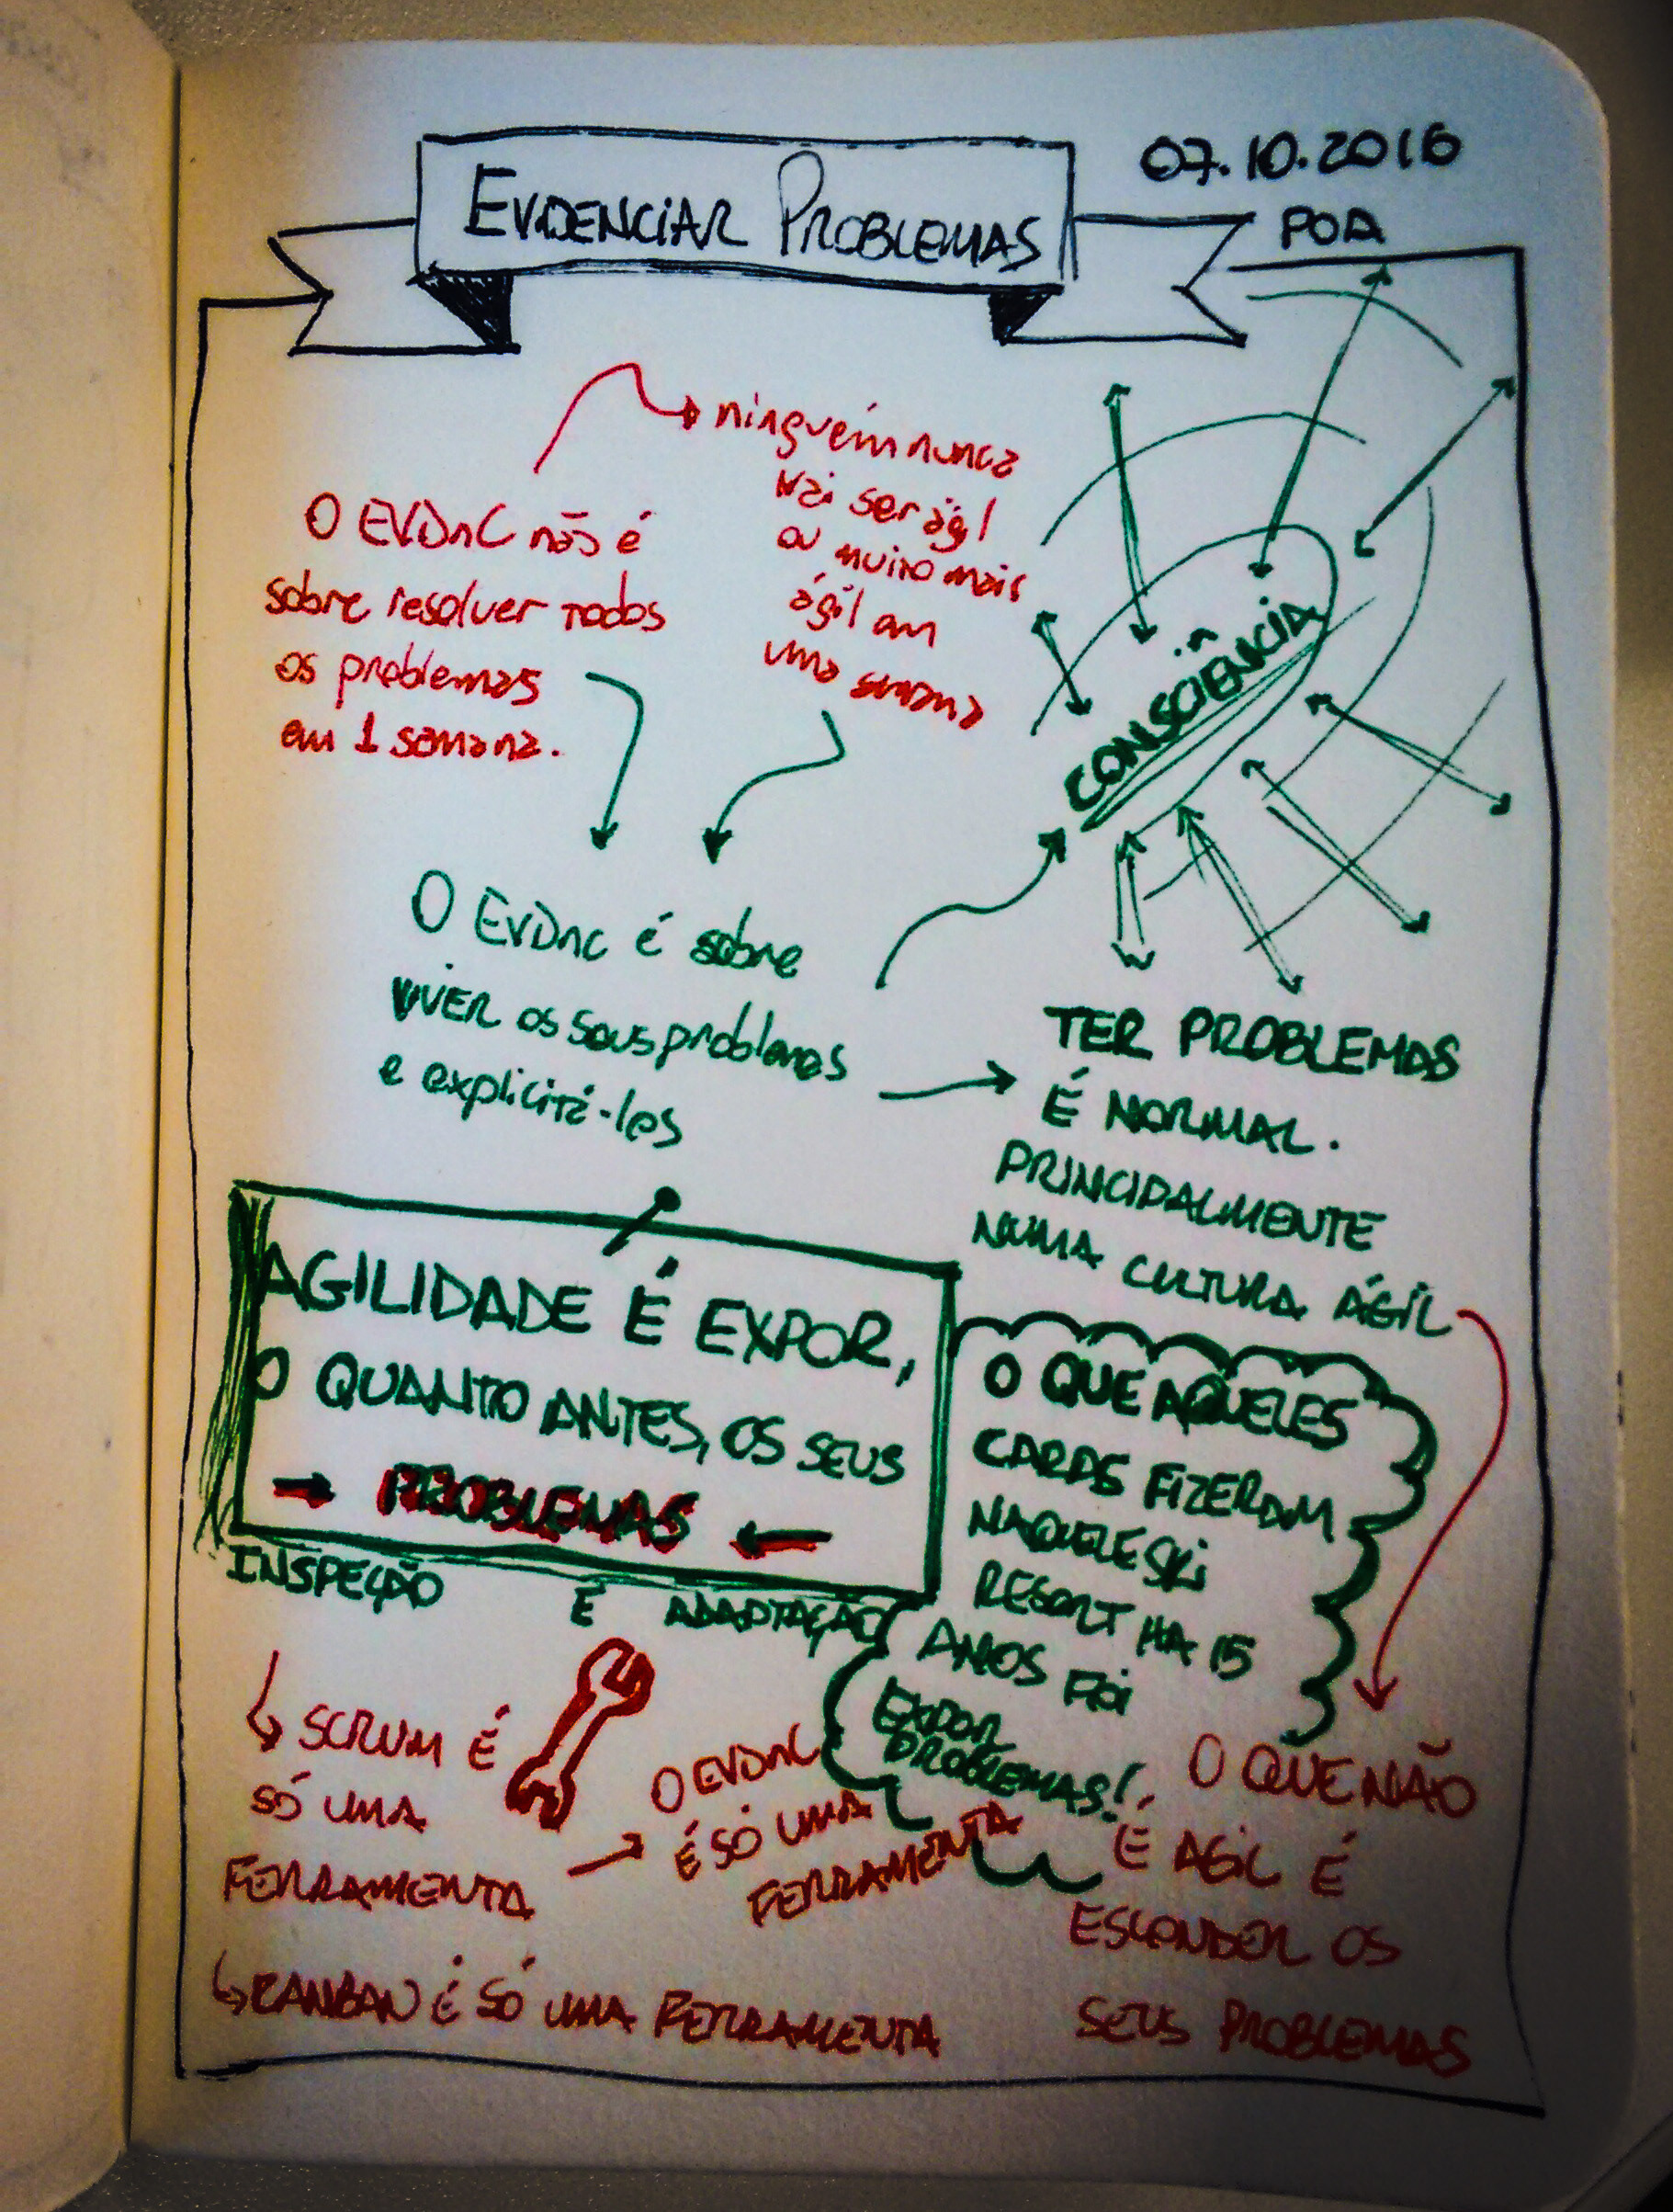 EVIDENCIAR PROBLEMAS
07.10.2016
POA
ninguém nunca
vai ser ágil
ou muito mais
ágil em
uma semana
O EVDnC não é
sobre resolver todos
os problemas
em 1 semana.
CONSCIÊNCIA
O EVDnC é sobre
VIVER os seus problemas
e explicitá-los
TER PROBLEMAS
É NORMAL.
PRINCIPALMENTE
NUMA CULTURA ÁGIL
AGILIDADE É EXPOR,
O QUANTO ANTES, OS SEUS
PROBLEMAS
INSPEÇÃO E ADAPTAÇÃO
O QUE AQUELES
CARAS FIZERAM
NAQUELE SKI
RESORT HA 15
ANOS FOI
EXPOR
PROBLEMAS!
SCRUM É
SÓ UMA
FERRAMENTA
O EVDnC
É SÓ UMA
FERRAMENTA
KANBAN É SÓ UMA FERRAMENTA
O QUE NÃO
É AGIL É
ESCONDER OS
SEUS PROBLEMAS